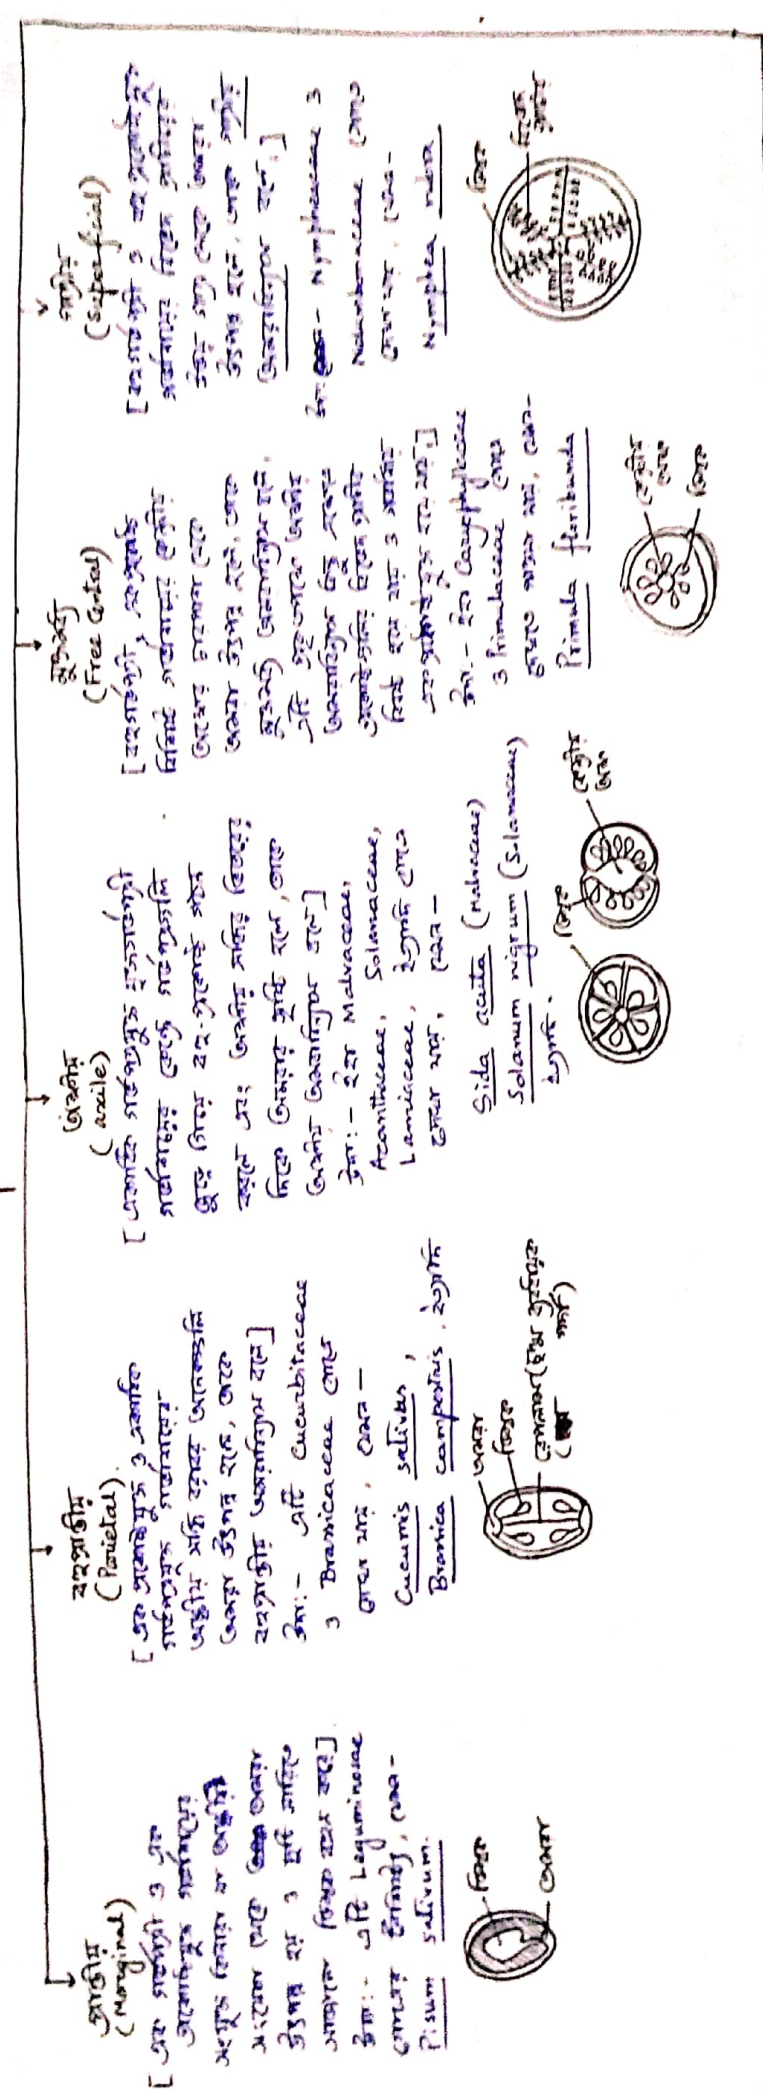 প্রান্তীয়
(Marginal)
[এক গর্ভপত্রী ও এক
প্রকোষ্ঠযুক্ত গর্ভাশয়ে
সংযুক্ত কিনারা বা অঙ্কীয়
সংযোগ থেকে অমরা
উৎপন্ন হয় ও দুটি সারিতে
সাজানো ডিম্বক বহন করে]
উদা:- এটি Leguminosae
গোত্রের বৈশিষ্ট্য, যেমন-
Pisum sativum.
ডিম্বক
অমরা
বহুপ্রান্তীয়
(Parietal)
[এক প্রকোষ্ঠযুক্ত ও একাধিক
গর্ভপত্রযুক্ত গর্ভাশয়ের
অঙ্কীয় সন্ধি বরাবর অনেকগুলি
অমরা উৎপন্ন হলে, তাকে
বহুপ্রান্তীয় অমরাবিন্যাস বলে]
উদা:- এটি Cucurbitaceae
ও Brassicaceae গোত্রে
দেখা যায়, যেমন-
Cucumis sativus,
Brassica campestris, ইত্যাদি
অমরা
ডিম্বক
রেপলাম (ছদ্ম
অক্ষীয়
(axile)
[একাধিক গর্ভপত্রযুক্ত যুক্তগর্ভপত্রী
গর্ভাশয়ের কেন্দ্রে গর্ভপত্রগুলি
জুড়ে গিয়ে বহু-প্রকোষ্ঠ গঠন
করলে এবং অক্ষীয় সন্ধির ভিতরের
দিকে অমরার সৃষ্টি হলে, তাকে
অক্ষীয় অমরাবিন্যাস বলে]
উদা:- ইহা Malvaceae,
Acanthaceae, Solanaceae,
Lamiaceae, ইত্যাদি গোত্রে
দেখা যায়, যেমন-
Sida acuta (Malvaceae)
Solanum nigrum (Solanaceae)
ইত্যাদি.
ডিম্বক
কেন্দ্রীয়
অক্ষ
মুক্তমধ্য
(Free Central)
[বহুগর্ভপত্রী, একপ্রকোষ্ঠ
বিশিষ্ট গর্ভাশয়ের কেন্দ্রীয়
অক্ষের চারপাশ থেকে
অমরা উৎপন্ন হলে, তাকে
মুক্তমধ্য অমরাবিন্যাস বলে,
এটি প্রকৃতপক্ষে অক্ষীয়
অমরাবিন্যাস কিন্তু এখানে
বিনষ্ট হয়ে যায় ও গর্ভাশয়
একপ্রকোষ্ঠযুক্ত হয়ে যায়]
উদা:- ইহা Caryophyllaceae
ও Primulaceae গোত্রে
দেখতে পাওয়া যায়, যেমন-
Primula floribunda
কেন্দ্রীয়
অক্ষ
ডিম্বক
গাত্রীয়
(Superficial)
[বহুগর্ভপত্রী ও বহু প্রকোষ্ঠযুক্ত
গর্ভাশয়ের ভিতরে প্রাচীরের
উৎপন্ন হলে, তাকে গাত্রীয়
অমরাবিন্যাস বলে।]
উদা:- Nymphaeaceae ও
Nelumbonaceae গোত্রে
দেখা যায়, যেমন-
Nymphea
ডিম্বক